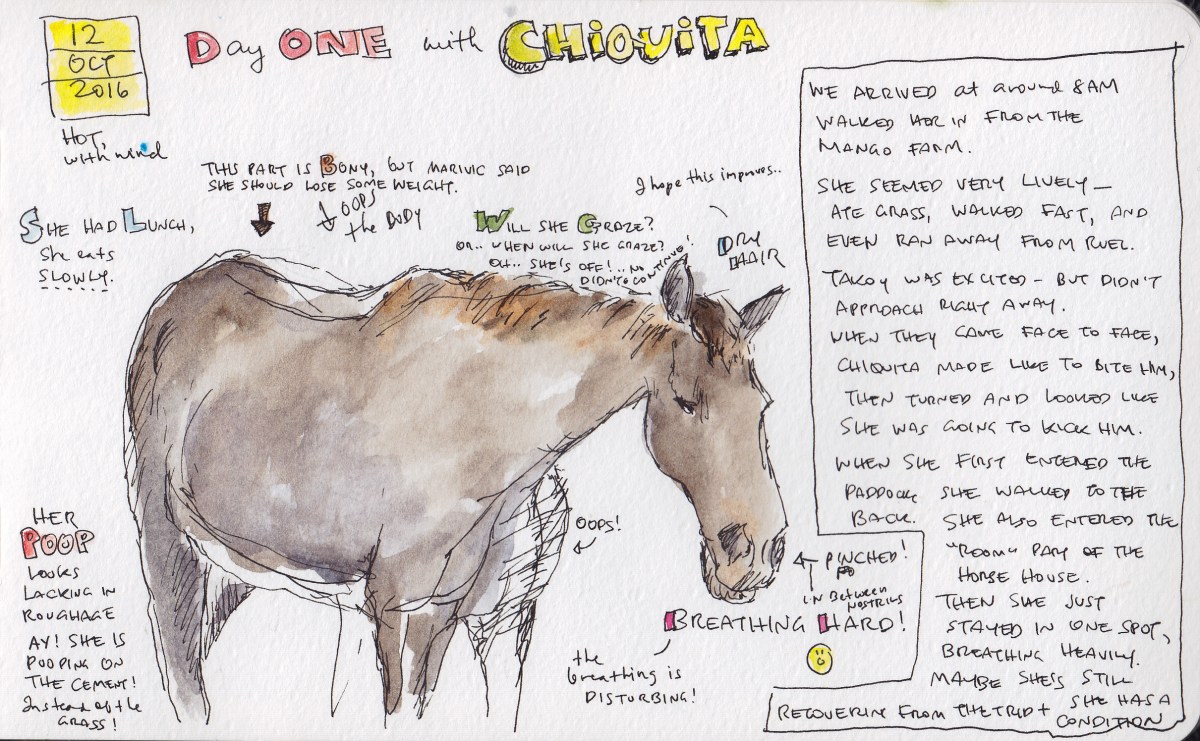 12
OCT
2016
Day ONE with CHIQUITA
HOT,
with wind
THIS PART IS BONY, BUT MARIVIC SAID
SHE SHOULD LOSE SOME WEIGHT.
OOPS
the BODY
SHE HAD LUNCH,
She eats
SLOWLY.
WILL SHE GRAZE?
OR.. WHEN WILL SHE GRAZE?
OH.. SHE'S OFF!.. NO
DIDN'T CONTINUE!
I hope this improves..
DRY
HAIR
HER
POOP
LOOKS
LACKING IN
ROUGHAGE
AY! SHE IS
POOPING ON
THE CEMENT!
Instead of the
GRASS!
OOPS!
PINCHED!
IN BETWEEN
NOSTRILS
BREATHING HARD!
the
breathing is
DISTURBING!
WE ARRIVED at around 8AM
WALKED HER IN FROM THE
MANGO FARM.
SHE SEEMED VERY LIVELY –
ATE GRASS, WALKED FAST, AND
EVEN RAN AWAY FROM RUEL.
TAKOY WAS EXCITED – BUT DIDN'T
APPROACH RIGHT AWAY.
WHEN THEY CAME FACE TO FACE,
CHIQUITA MADE LIKE TO BITE HIM,
THEN TURNED AND LOOKED LIKE
SHE WAS GOING TO KICK HIM.
WHEN SHE FIRST ENTERED THE
PADDOCK SHE WALKED TO THE
BACK. SHE ALSO ENTERED THE
"ROOM" PART OF THE
HORSE HOUSE.
THEN SHE JUST
STAYED IN ONE SPOT,
BREATHING HEAVILY.
MAYBE SHE'S STILL
RECOVERING FROM THE TRIP + SHE HAS A
CONDITION